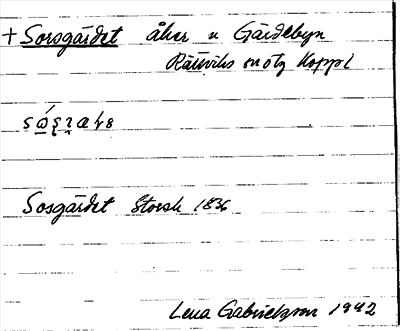 + Sorsgärdet åker u Gärdebyn
Rättviks sn o tg Koppl
Sosgärdet Storsk 1836
Lena Gabrielsson 1942